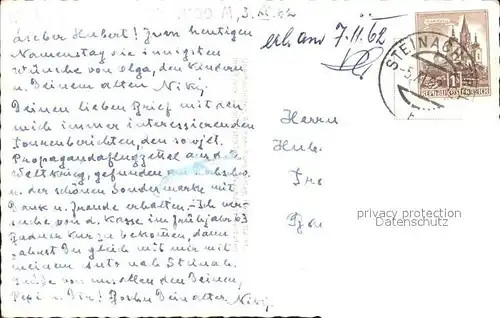 M, 3. XI. 62
Lieber Hubert! Zum heutigen
Namenstag die innigsten
Wünsche von Olga, den Kindern
u. Deinem alten Niky
Deinen lieben Brief mit den
mich immer interessierenden
Tourenberichten, den sowjet.
Propagandaflugzettel aus d. 2.
Weltkrieg, gefunden am
u. der schönen Sondermarke mit
Dank u. Freude erhalten. Ich ver-
suche von d. Kasse im Frühjahr 63
Kur zu bekommen, dann
fahrst Du gleich mit mir mit
meinem Auto nach Steinach.
Grüße von uns allen den Deinen,
Pepi u. Dir! Dein alter Niky
erh. am 7. 11. 62
STEINACH
REPUBLIK ÖSTERREICH
Herrn
privacy protection
AnsichtskartenVersand